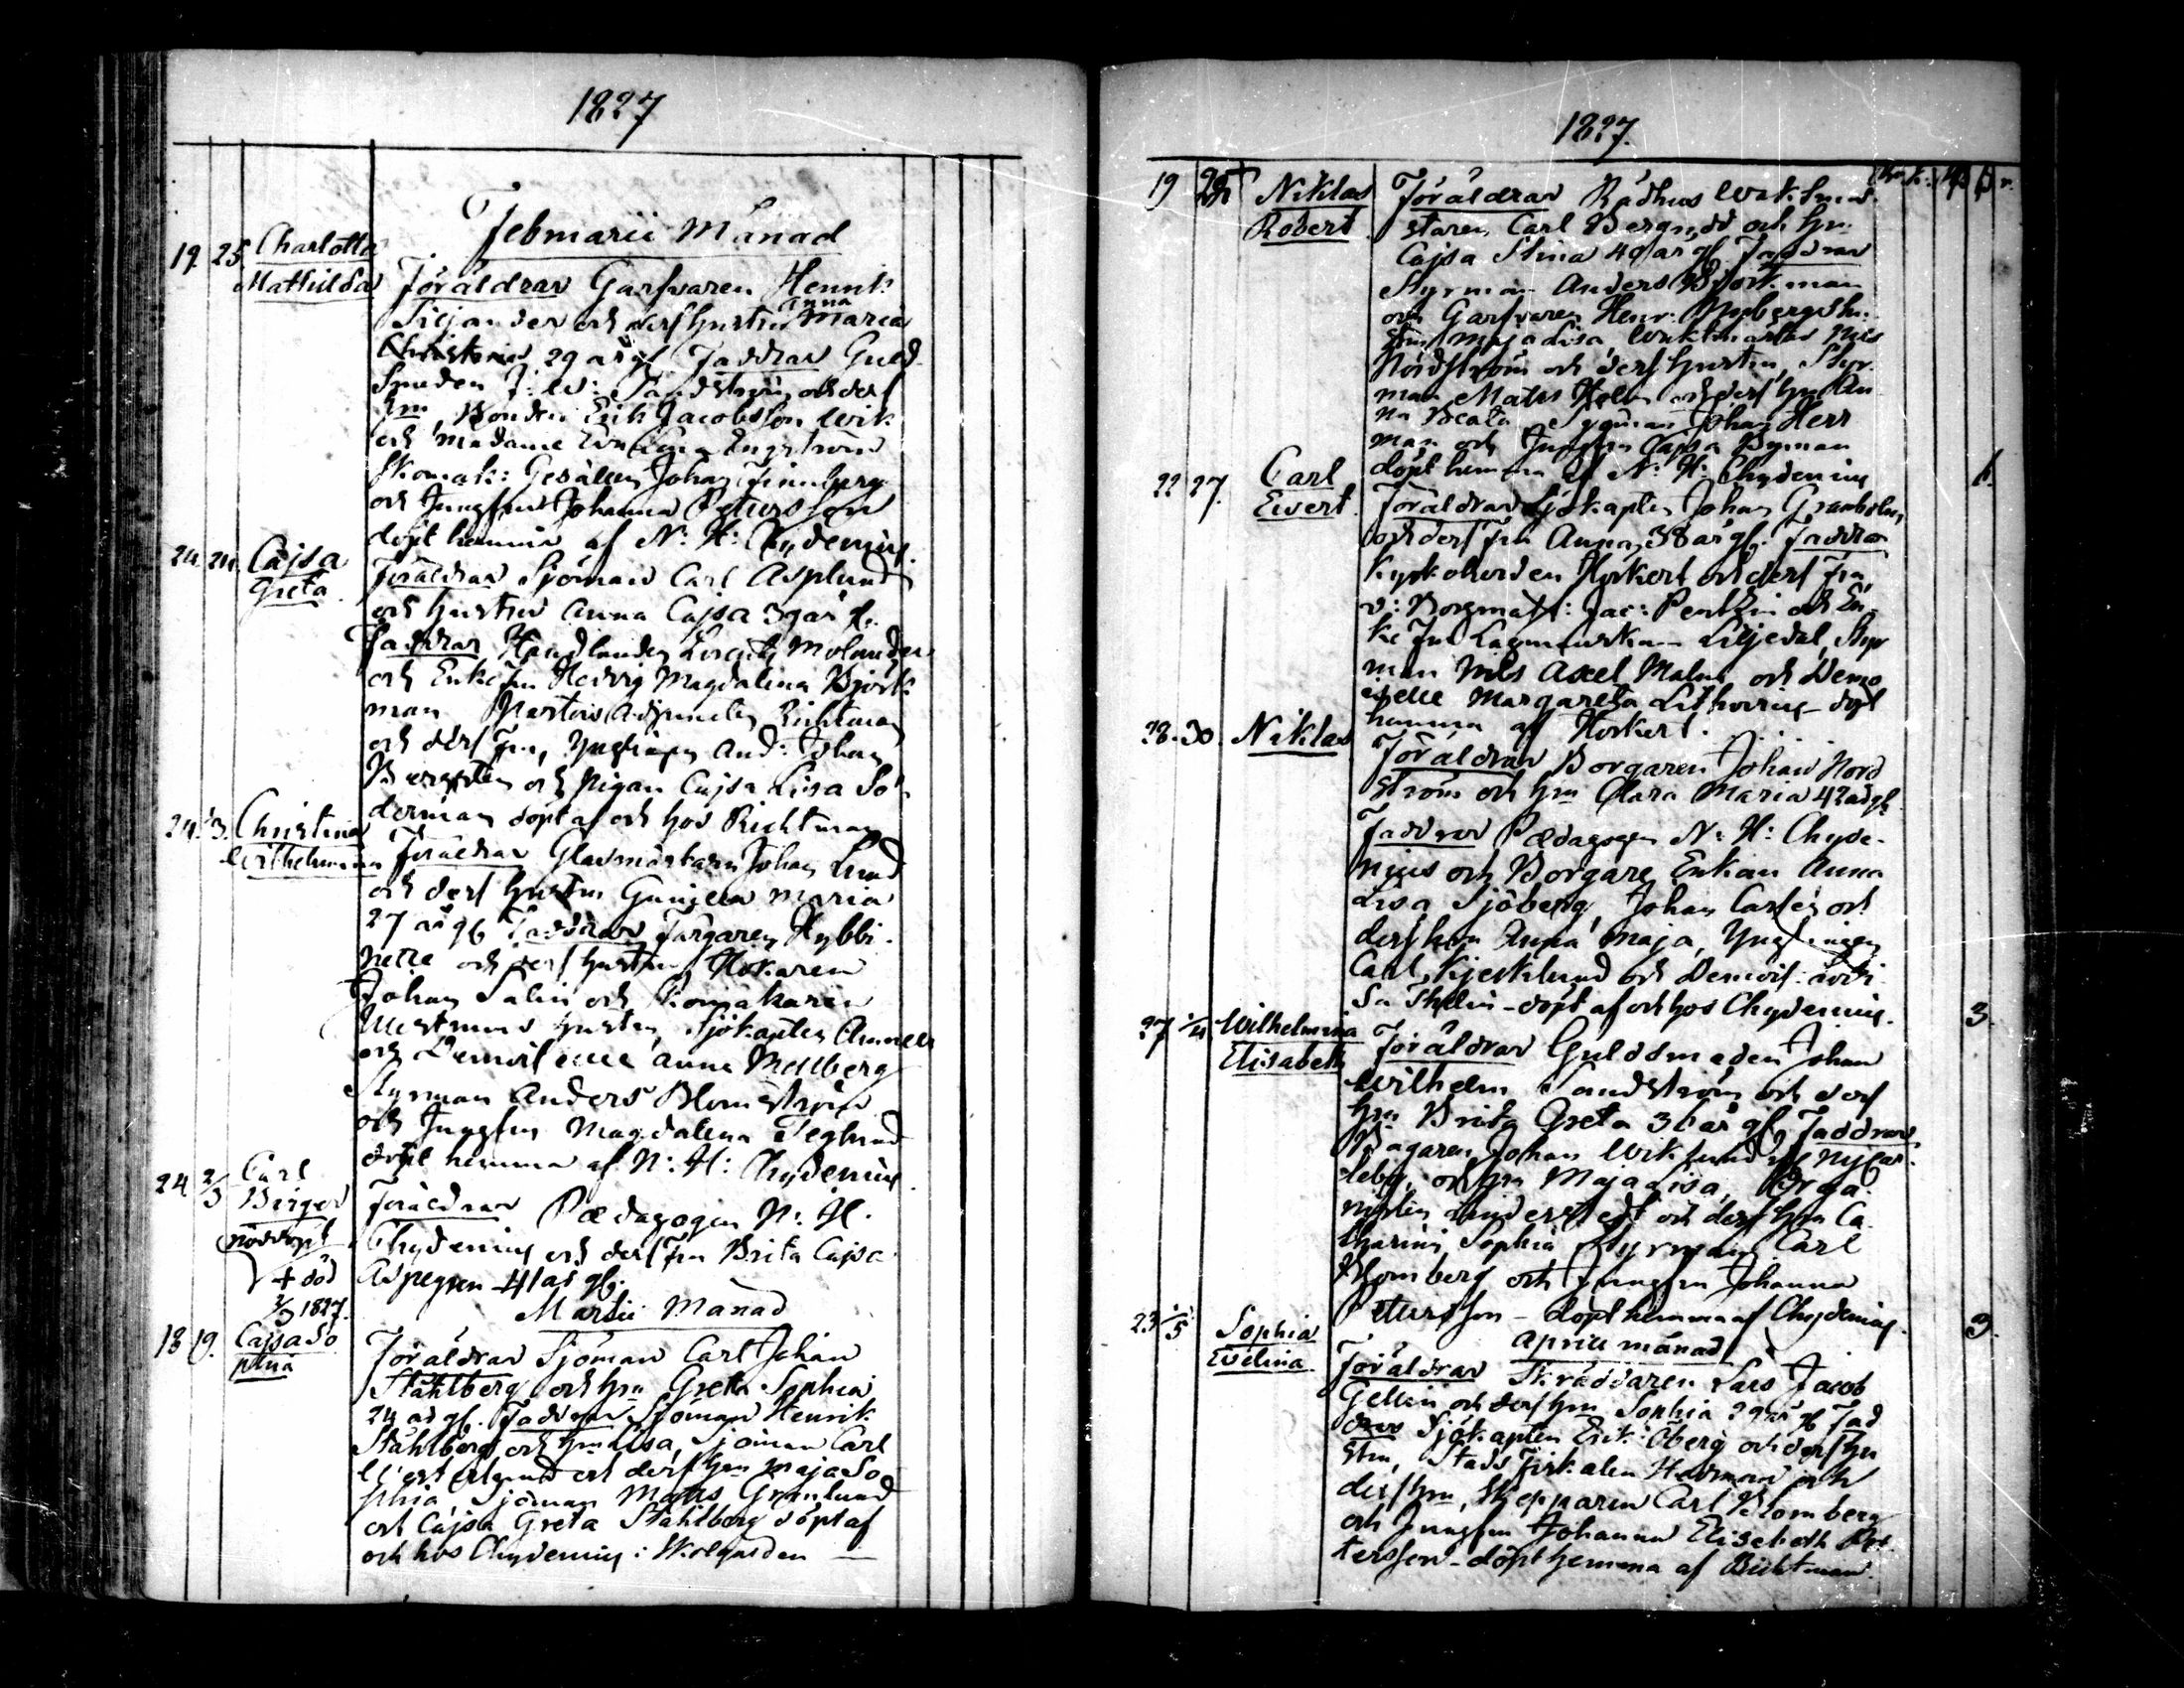 1827
Februarii Månad
19. 25. Charlotta
Mathilda
Föräldrar Garfvaren Henrik
Siljander och dess hustru Anna Maria
Christina 29 år gl. Faddrar Guld
Smeden J: W: Sandström och dess
hru, Bonden Erik Jacobsson Wik
och Madame Eva Lena Engström
Skomak: Gesällen Johan Finnberg
och Jungfru Johanna Petersson
döpt hemma af N: H: Chydenius.
24. Cajsa
Greta
Föräldrar Sjöman Carl Asplund
och hustru Anna Cajsa 39 år gl.
Faddrar Handlanden Molander
och Enkefru Hedvig Magdalena Björk
man Pastors Adjuncten Richtman
och dess Fru, Ynglingen And: Johan
och Pigan Cajsa Lisa Sö
derman döpt af och hos Richtman
24. 1/3. Christina
Wilhelmina
Föräldrar Glasmästaren Johan Lund
och dess hustru Gunilla Maria
27 år gl Faddrar Färgaren Hybbi
nette och dess hustru Hökaren
Johan Salin och
hustru, Sjökapten
och Demoiselle Anna Mellberg
Styrman Anders Blomström
och Jungfru Magdalena Teglund
döpt hemma af N: H: Chydenius.
24 2/3 Carl
Birger
nöddöpt
+ död
2/3 1827.
Föräldrar Pædagogen N: H.
Chydenius och dess Fru Brita Cajsa
Aspegren 41 år gl.
Martii Månad
18 19. Cajsa So
phia
Föräldrar Sjöman Carl Johan
Ståhlberg och hru Greta Sophia
24 år gl. Faddrar Sjöman Henrik
Ståhlberg och hru Lisa, Sjöman Carl
och dess hru Maja So
phia, Sjöman Matts Granlund
och Cajsa Greta Ståhlberg döpt af
och hos Chydenius i Skolgården
1827.
19 Niklas
Robert
Föräldrar Rådhus Waktmä
staren Carl Bergudd och hru
Cajsa Stina 40 år gl. Faddrar
Styrman Anders Björkman
och Garfvaren Henr.
Maja Lisa, Waktmästar Nils
Nordström och dess hustru, Styr
man Matts Holm och dess hru An
na Beata Sjöman Johan Herr
man och Jungfru Cajsa Byman
döpt hemma af N: H: Chydenius
22 27. Carl
Evert.
Föräldrar Sjökapten Johan Granholm,
och dess Fru Anna 38 år gl. Faddrar
Kyrkoherden Horkert och dess Fru,
v: Borgmäst: Jac: och En
ke Fru Lagmanskan Liljedal, Styr
man Nils Axel Malm och Demo
iselle Margareta Lithovius döpt
hemma af Horkert.
28. 30. Niklas
Föräldrar Borgaren Johan Nord
ström och hru Clara Maria 42 år gl
Faddrar Pædagogen N: H: Chyde
nius och Borgare Enkan Anna
Lisa Sjöberg, Johan Carlén och
dess hru Anna Maja, Ynglingen
Carl Kjerklund och Demois: Lovi
sa Thelin döpt af och hos Chydenius.
3.
27 1/4 Wilhelmina
Elisabeth
Föräldrar Guldsmeden Johan
Wilhelm Sandström och dess
hru Brita Greta 36 år gl, Faddrar,
Bagaren Johan Wiklund i Nycar
leby, och hru Maja Lisa, Orga
nisten Linderstedt och dess hru Ca
tharina Sophia Styrman Carl
Blomberg och Jungfru Johanna
Petersson döpt hemma af Chydenius.
3.
April månad
23 1/5 Sophia
Evelina
Föräldrar Skräddaren Lars Jacob
Gellin och dess hru Sophia 29 år gl Fad
drar Sjökapten Erik Öberg och dess hu
stru, Stads Fiskalen Hedman och
dess hru, Skepparen Carl Blomberg
och Jungfru Johanna Elisabeth Pet
tersson döpt hemma af Richtman.